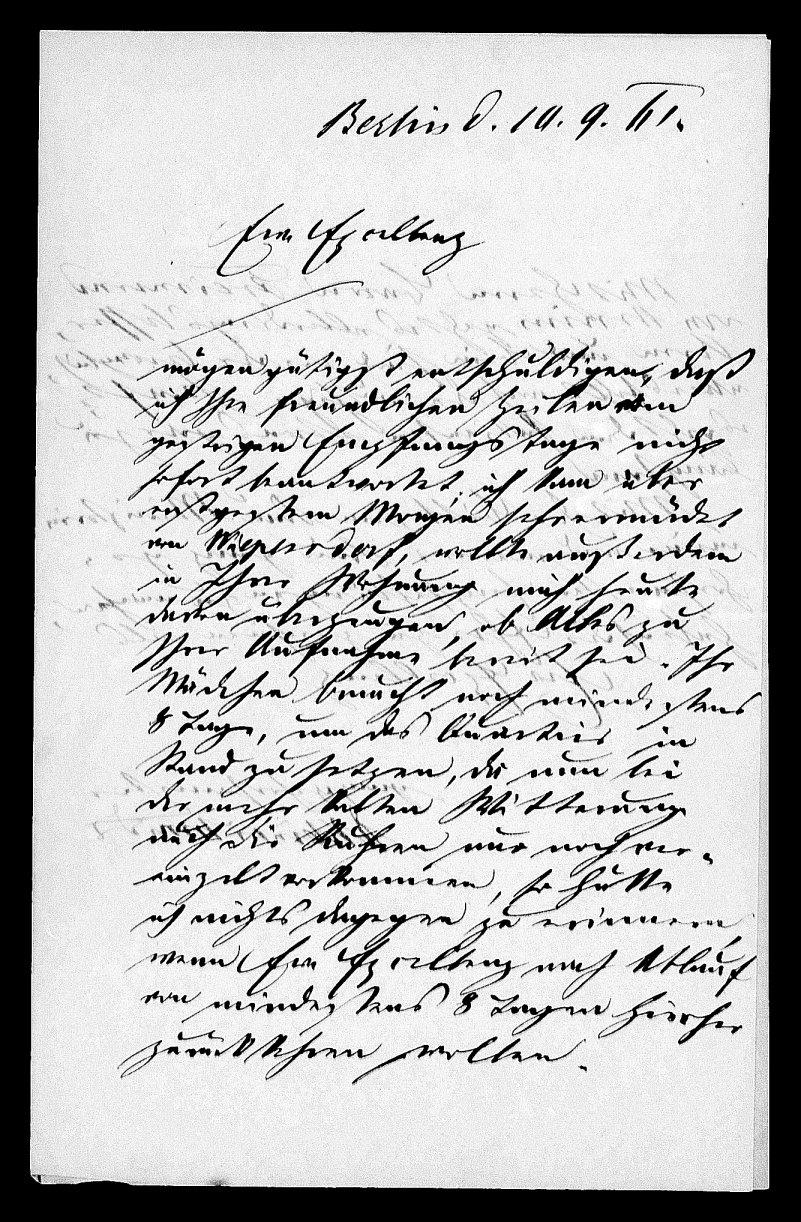 Berlin d. 10. 9. 61.
Ew Excellenz
mögen gütigst entschuldigen, daß
ich Ihre freundlichen Zeilen am
gestrigen Empfangstage nicht
sofort beantwortet; ich kam aber
erst gestern Morgen sehr ermüdet
von Wiepersdorf, wollte außerdem
in Ihrer Wohnung mich heute
davon überzeugen, ob Alles zu
Ihrer Aufnahme bereit sei. Ihr
Mädchen braucht noch mindestens
8 Tage, um das Quartier in
Stand zu setzen, da nun bei
der mehr kalten Witterung
auch die Ruhren nur noch ver-
einzelt vorkommen, so hätte
ich nichts dagegen zu erinnern,
wenn Ew Excellenz nach Ablauf
von mindestens 8 Tagen hierher
zurückkehren wollen.